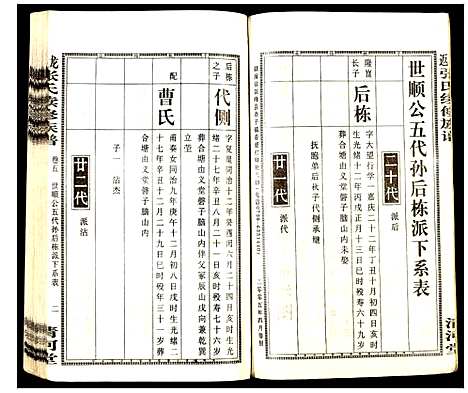 泷张氏续修族谱
清河堂
世顺公五代孙后栋派下系表
二十代
派后
隆官
长子
后栋
字大望行学一嘉庆二十二年丁丑十月初三日亥时
生光绪十二年丙戌正月十三日巳时殁寿六十九
葬合塘由义堂磐子脑山内未娶
抚胞弟后秋子代侧承继
廿一代
二〇〇五年四月
后栋
之子
代侧
字复晃同治十二年癸酉闰六月二十四日亥时生光
绪二十七年辛丑八月二十一日戌时殁寿七十
葬合塘由义堂磐子脑山内伴父冢辰山戌向兼乾巽
配
曹氏
甫秦女同治九年庚午十二月初八日戌时生光绪二
十七年辛丑十二月二十九日巳时殁年三十一岁葬
合塘由义堂磐子脑山内
子一
沾杰
廿二代
派沾
泷张氏续修族谱
卷五
世顺公五代孙后栋派下系表
二
清河堂